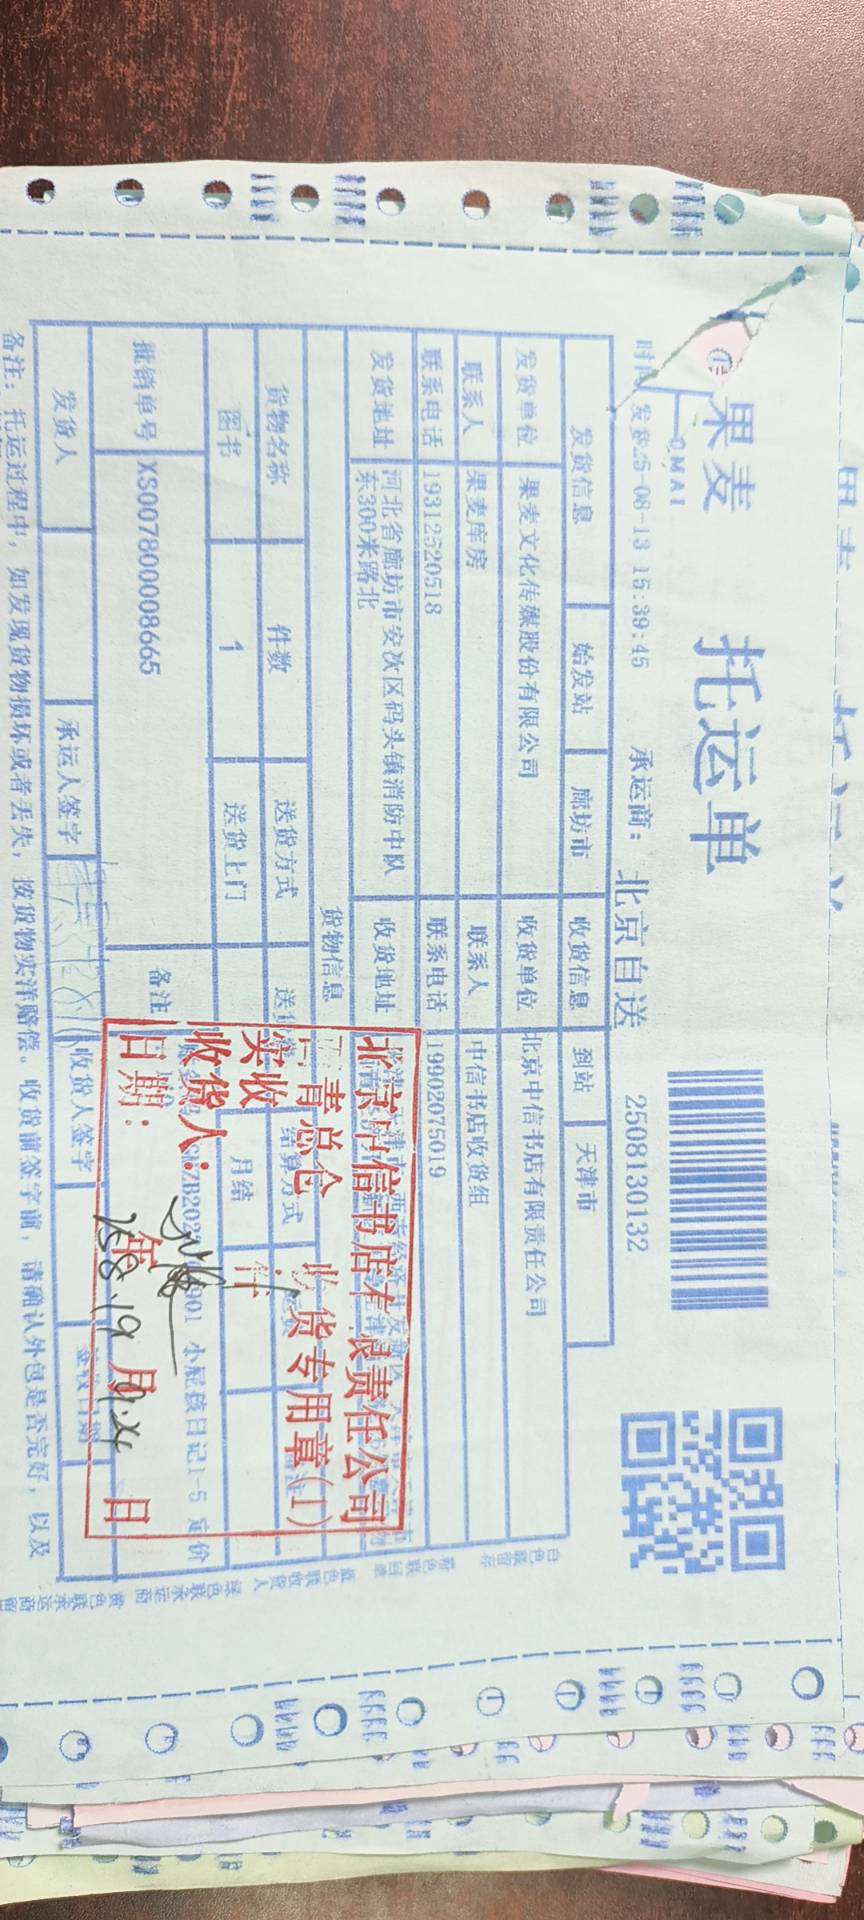 果麦
GMAI
托运单
2508130132
时间
发货25-08-13 15:39:45
承运商：
北京自送
发货信息 始发站 廊坊市 收货信息 到站 天津市
发货单位 果麦文化传媒股份有限公司 收货单位 北京中信书店有限责任公司
联系人 果麦库房 联系人 中信书店收货组
联系电话 19312520518 联系电话 19902075019
发货地址 河北省廊坊市安次区码头镇消防中队
东300米路北
收货地址
货物信息
货物名称 件数 送货方式 结算方式
图书 1 送货上门 月结
批销单号 XS007800008665 备注
小屁孩日记1-5 定价
发货人 承运人签字 收货人签字 签收日期
备注：托运过程中，如发现货物损坏或者丢失，按货物实洋赔偿。收货前签字前，请确认外包是否完好，以及
北京中信书店有限责任公司
青总仓 收货专用章(1)
实收 件
收货人：
日期： 年 月 日
白色联留存
粉色联回单
蓝色联收货人
绿色联承运商
黄色联承运商留